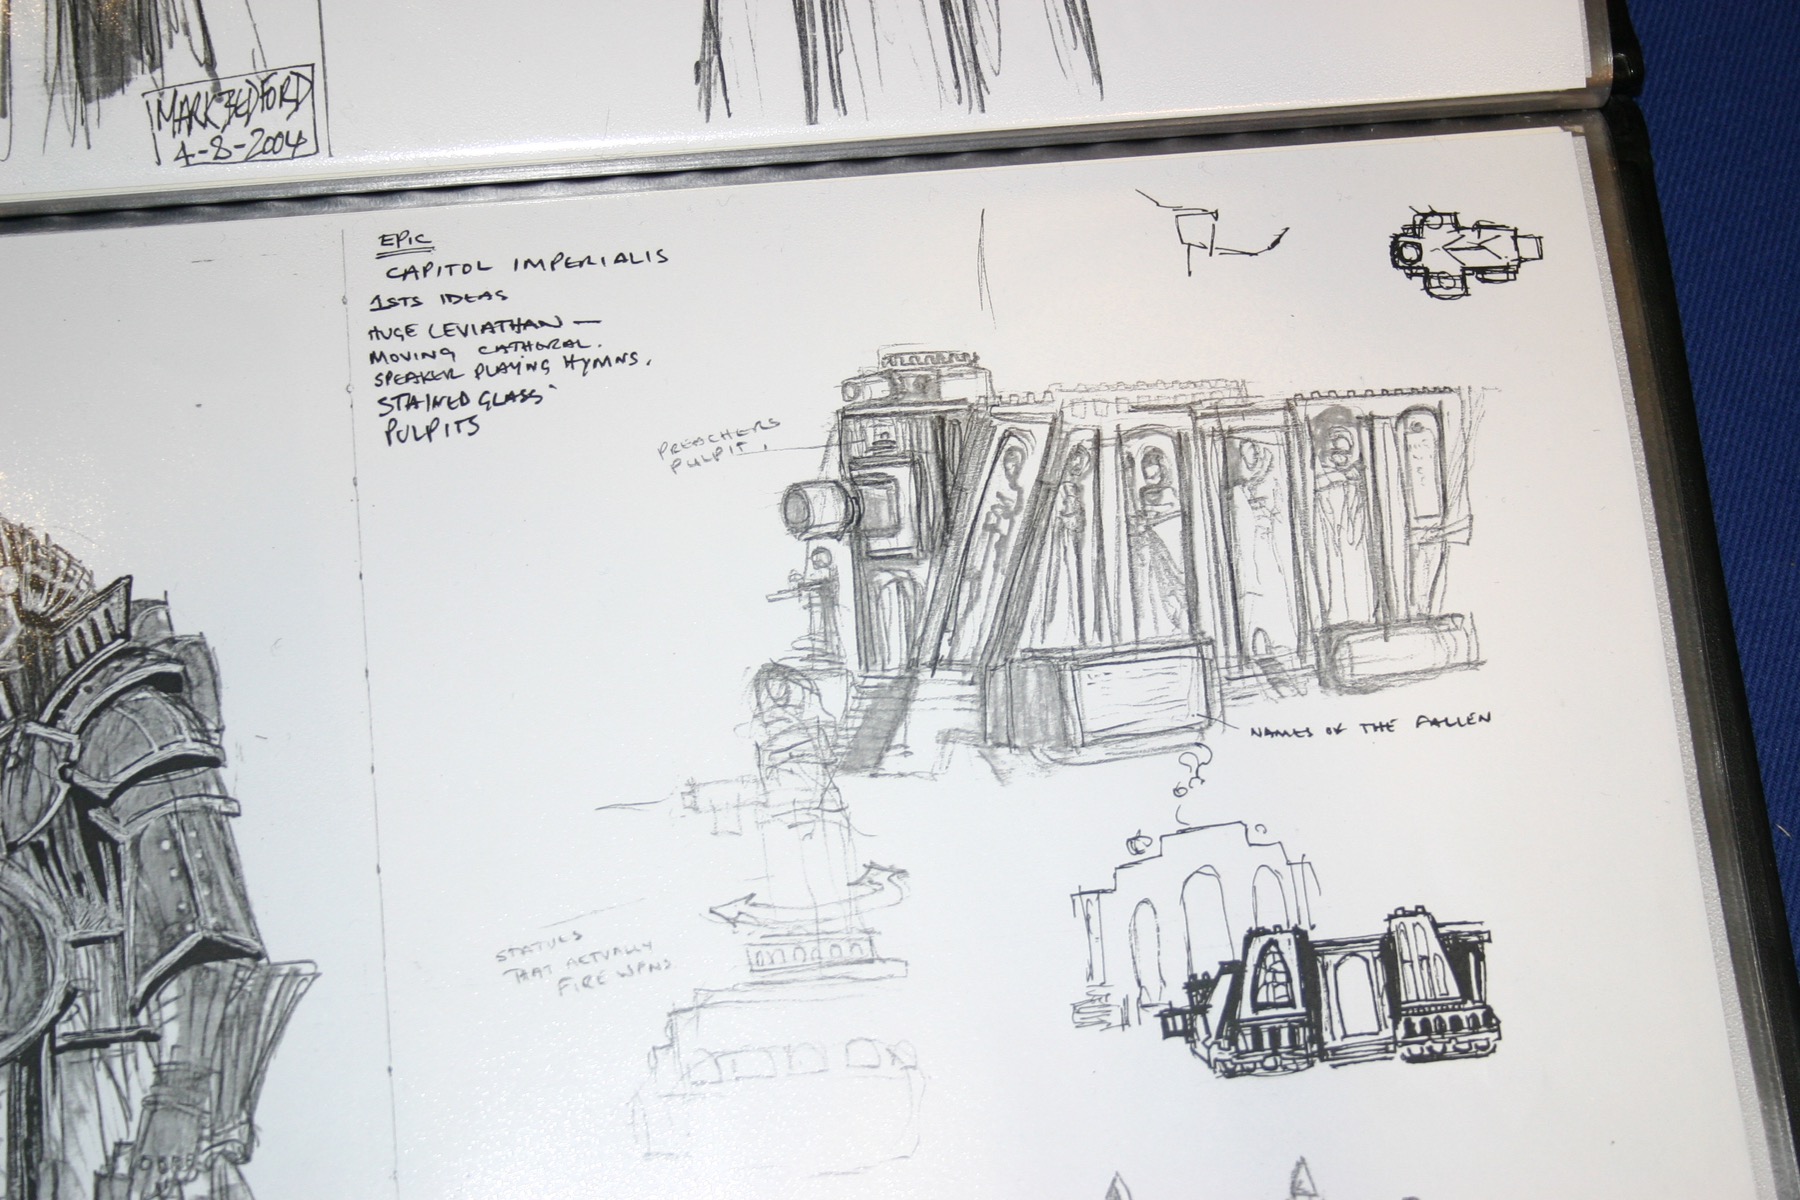 MARK BEDFORD
4-8-2004
EPIC
CAPITOL IMPERIALIS
1STS IDEAS
HUGE LEVIATHAN —
MOVING CATHDRAL.
SPEAKER PLAYING HYMNS.
STAINED GLASS
PULPITS
PREACHERS
PULPIT.
NAMES OF THE FALLEN
STATUES
THAT ACTUALLY
FIRE WPNS